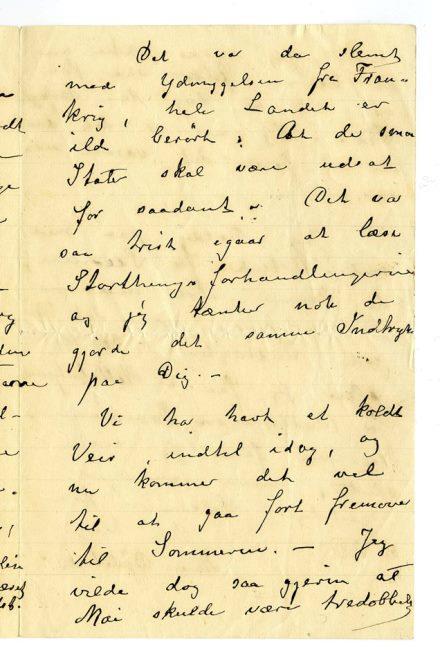 Det var da slemt
med Ydmygelsen fra Fran-
krig, hele Landet er
ilde berørt. At de smaa
Stater skal være udsat
for saadant!! Det var
saa trist igaar at læse
Storthings forhandlingerne
og jeg tænker nok de
gjorde det samme Indtryk
paa Dig. –
Vi ha havt et koldt
Veir, indtil idag, og
nu kommer det vel
til at gaa fort fremover
til Sommeren. – Jeg
vilde dog saa gjerne at
Mai skulde være tredobbelt